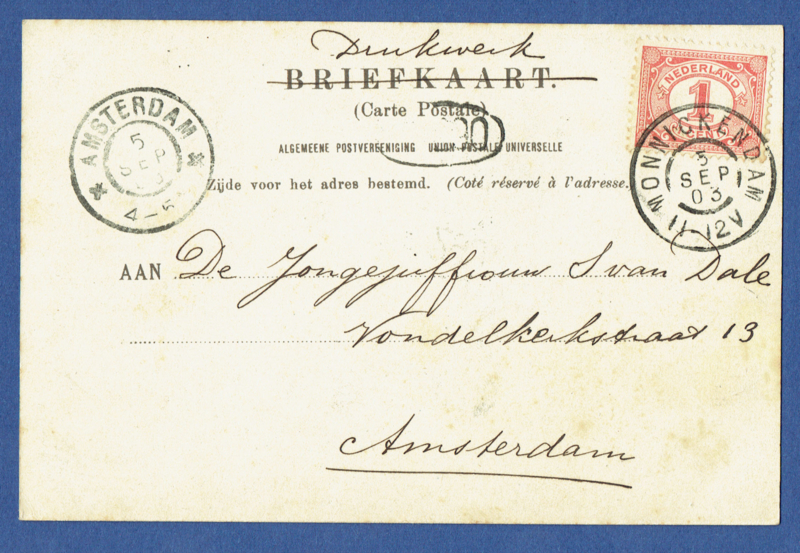 Drukwerk
BRIEFKAART.
(Carte Postale)
ALGEMEENE POSTVEREENIGING UNION POSTALE UNIVERSELLE
Zijde voor het adres bestemd. (Coté réservé à l'adresse.
NEDERLAND
1
CENT
MONNICKENDAM
5
SEP
03
11-12V
AMSTERDAM
5
SEP
03
4-5
AAN De Jongejuffrouw S van Dale
Vondelkerkstraat 13
Amsterdam